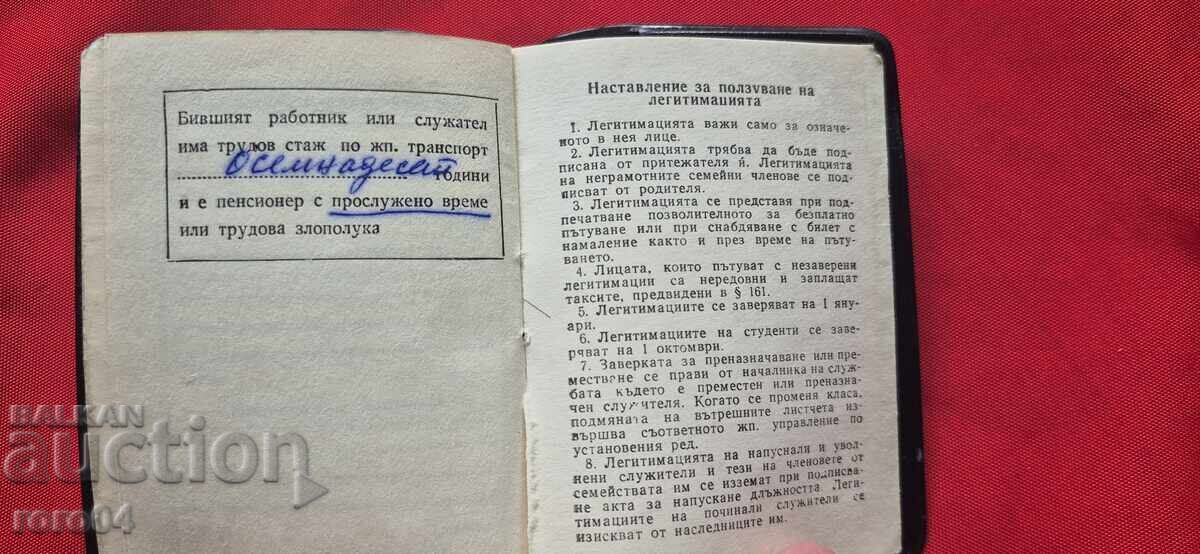 Бившият работник или служател
има трудов стаж по жп. транспорт
Осемнадесет години
и е пенсионер с прослужено време
или трудова злополука
Наставление за ползуване на
легитимацията
1. Легитимацията важи само за означе-
ното в нея лице.
2. Легитимацията трябва да бъде под-
писана от притежателя й. Легитимацията
на неграмотните семейни членове се под-
писват от родителя.
3. Легитимацията се представя при под-
печатване позволителното за безплатно
пътуване или при снабдяване с билет с
намаление както и през време на пъту-
ването.
4. Лицата, които пътуват с незаверени
легитимации са нередовни и заплащат
таксите, предвидени в § 161.
5. Легитимациите се заверяват на 1 яну-
ари.
6. Легитимациите на студенти се заве-
ряват на 1 октомври.
7. Заверката за преназначаване или пре-
местване се прави от началника на служ-
бата където е преместен или преназна-
чен служителя. Когато се променя класа,
подмяната на вътрешните листчета из-
вършва съответното жп. управление по
установения ред.
8. Легитимацията на напуснали и увол-
нени служители и тези на членовете от
семействата им се изземат при подписва-
не акта за напускане длъжността. Леги-
тимациите на починали служители се
изискват от наследниците им.
BALKAN
auction
roro04